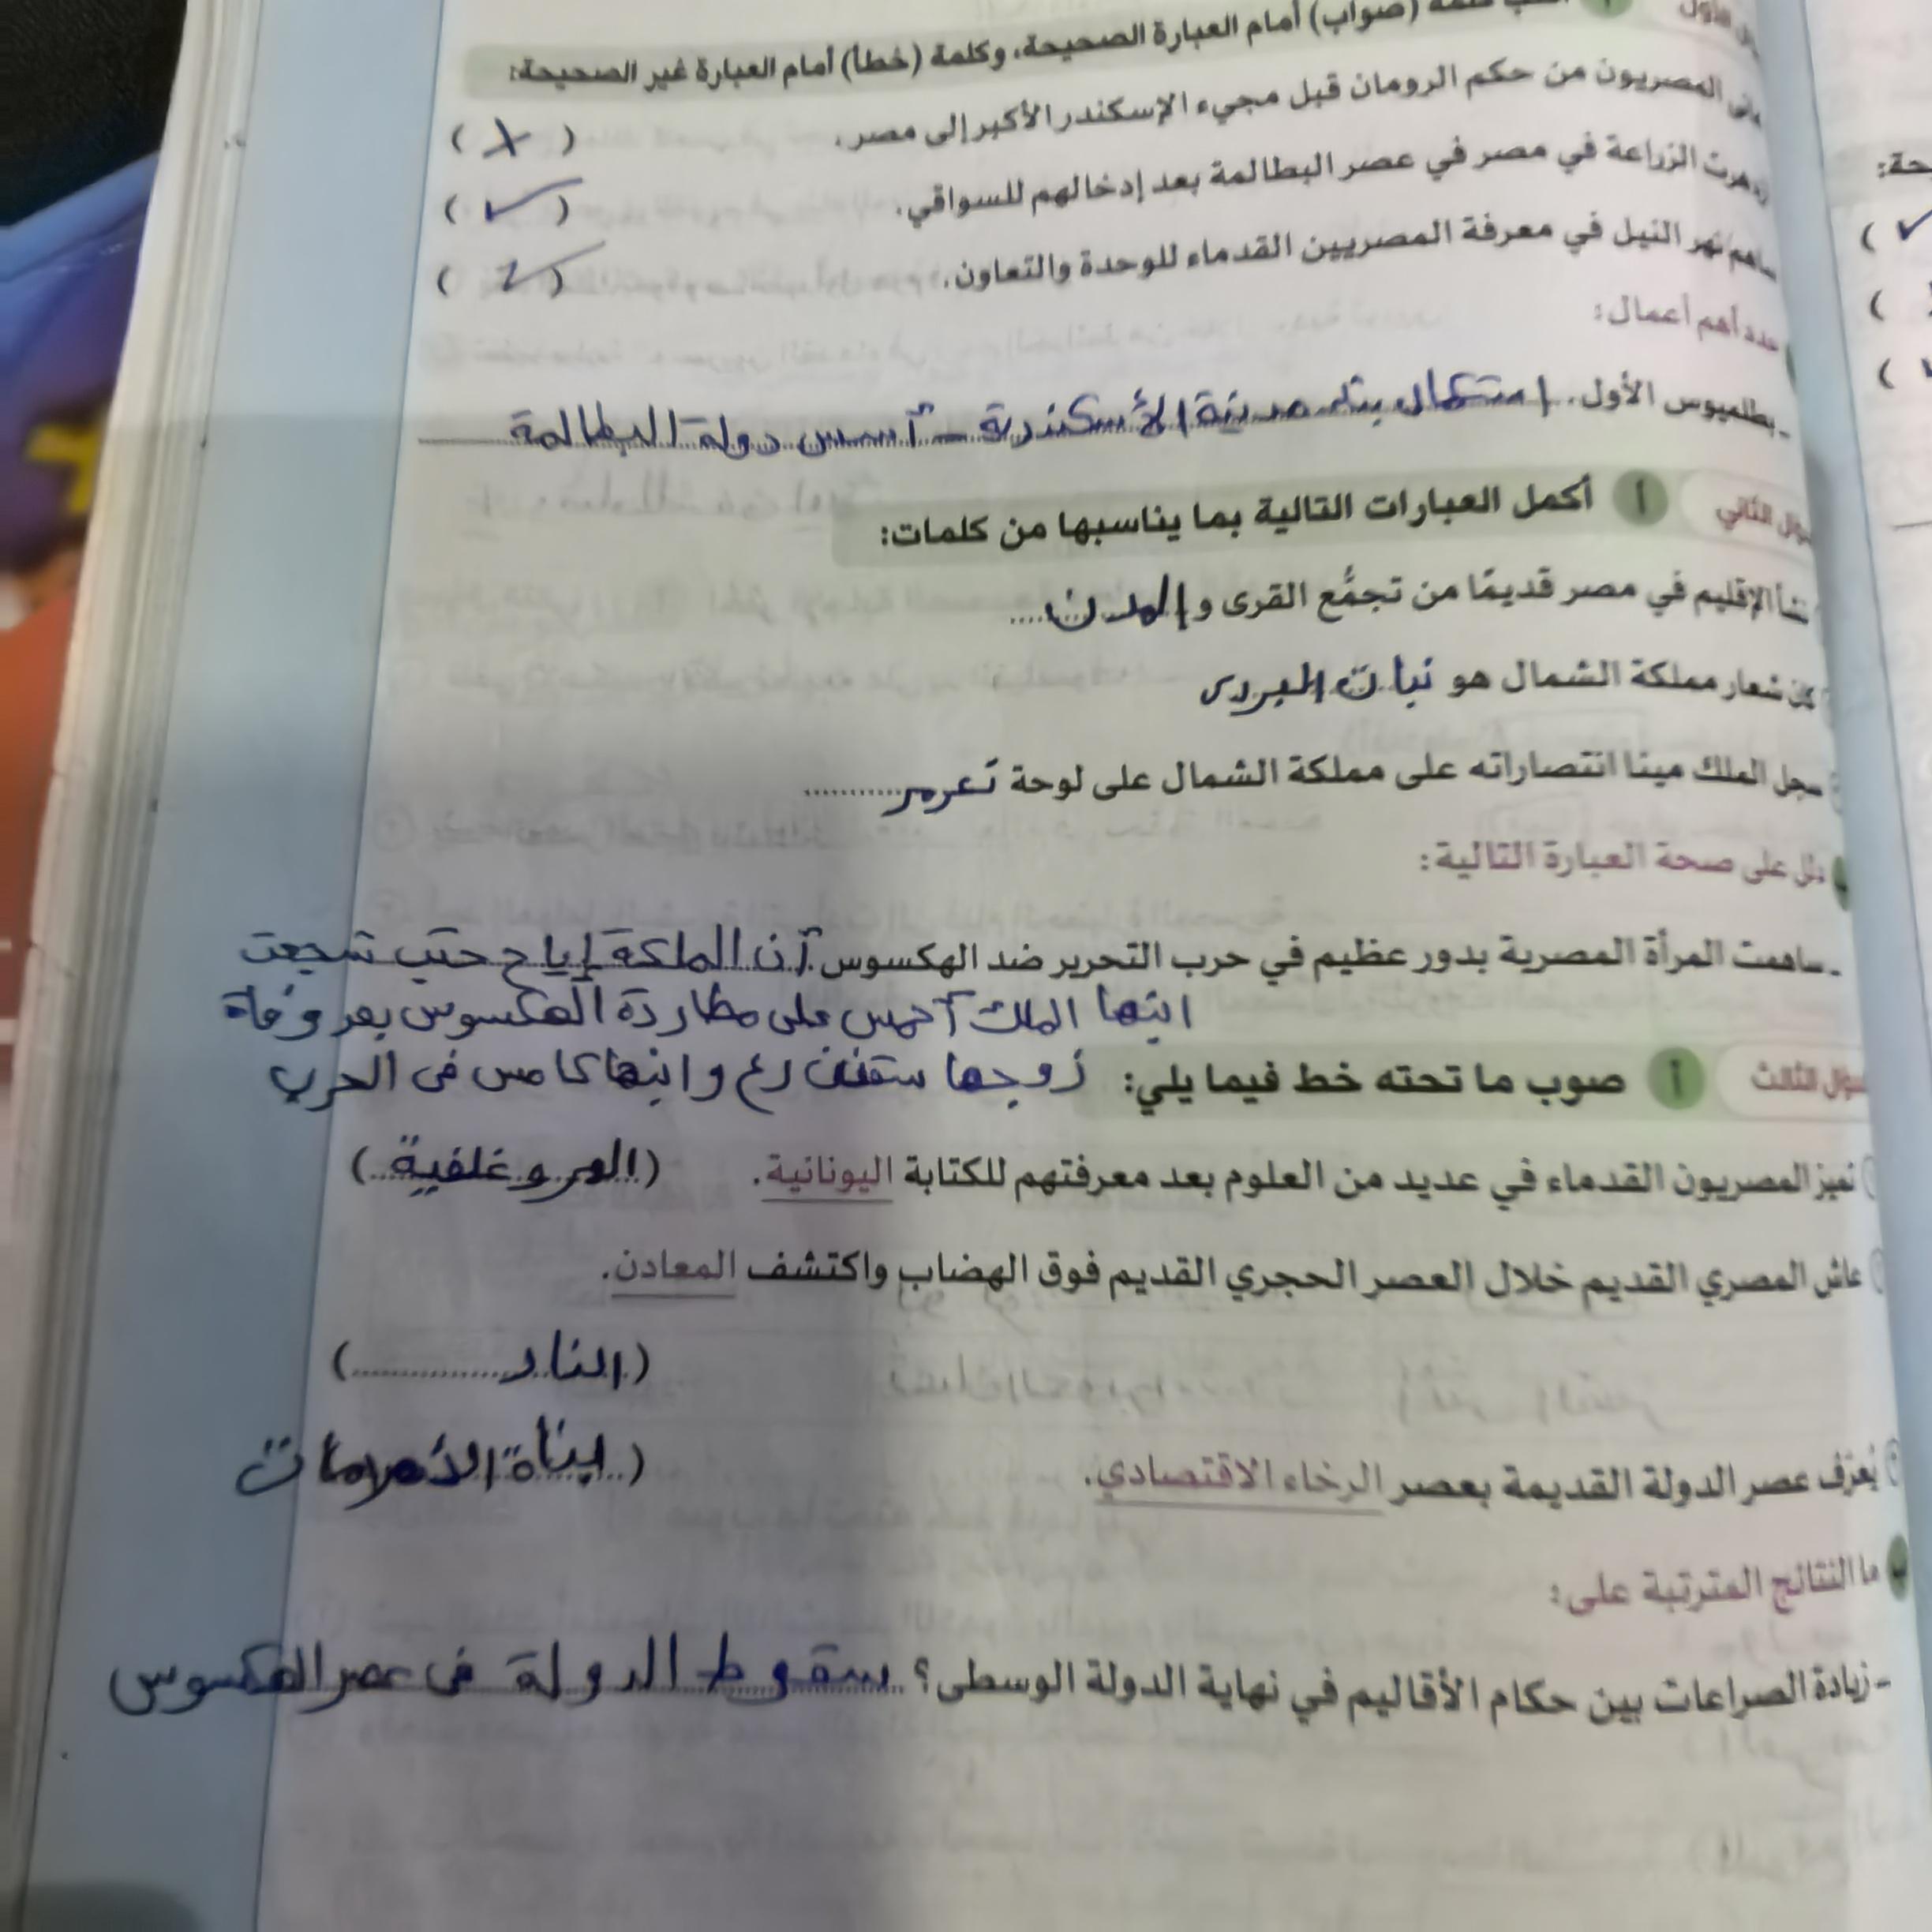 (صواب) أمام العبارة الصحيحة، وكلمة (خطأ) أمام العبارة غير الصحيحة:
المصريون من حكم الرومان قبل مجيء الإسكندر الأكبر إلى مصر. ( X )
الزراعة في مصر في عصر البطالمة بعد إدخالهم للسواقي. ( ✓ )
ساهم نهر النيل في معرفة المصريين القدماء للوحدة والتعاون. ( ✓ )
حدد أهم أعمال:
- بطلميوس الأول. استكمال بناء مدينة الأسكندرية - أسس دولة البطالمة
السؤال الثاني أ أكمل العبارات التالية بما يناسبها من كلمات:
نشأ الإقليم في مصر قديمًا من تجمُّع القرى و المدن
كان شعار مملكة الشمال هو نبات البردى
سجل الملك مينا انتصاراته على مملكة الشمال على لوحة نعرمر
دلل على صحة العبارة التالية:
- ساهمت المرأة المصرية بدور عظيم في حرب التحرير ضد الهكسوس. أن الملكة إياح حتب شجعت
ابنها الملك أحمس على مطاردة الهكسوس بعد وفاة
زوجها سقنن رع وابنها كامس فى الحرب
السؤال الثالث أ صوب ما تحته خط فيما يلي:
تميز المصريون القدماء في عديد من العلوم بعد معرفتهم للكتابة اليونانية. (الهيروغلفية)
عاش المصري القديم خلال العصر الحجري القديم فوق الهضاب واكتشف المعادن.
(النار)
يُعرَف عصر الدولة القديمة بعصر الرخاء الاقتصادي. (بناة الأهرامات
ب ما النتائج المترتبة على:
- زيادة الصراعات بين حكام الأقاليم في نهاية الدولة الوسطى؟ سقوط الدولة فى عصر الهكسوس